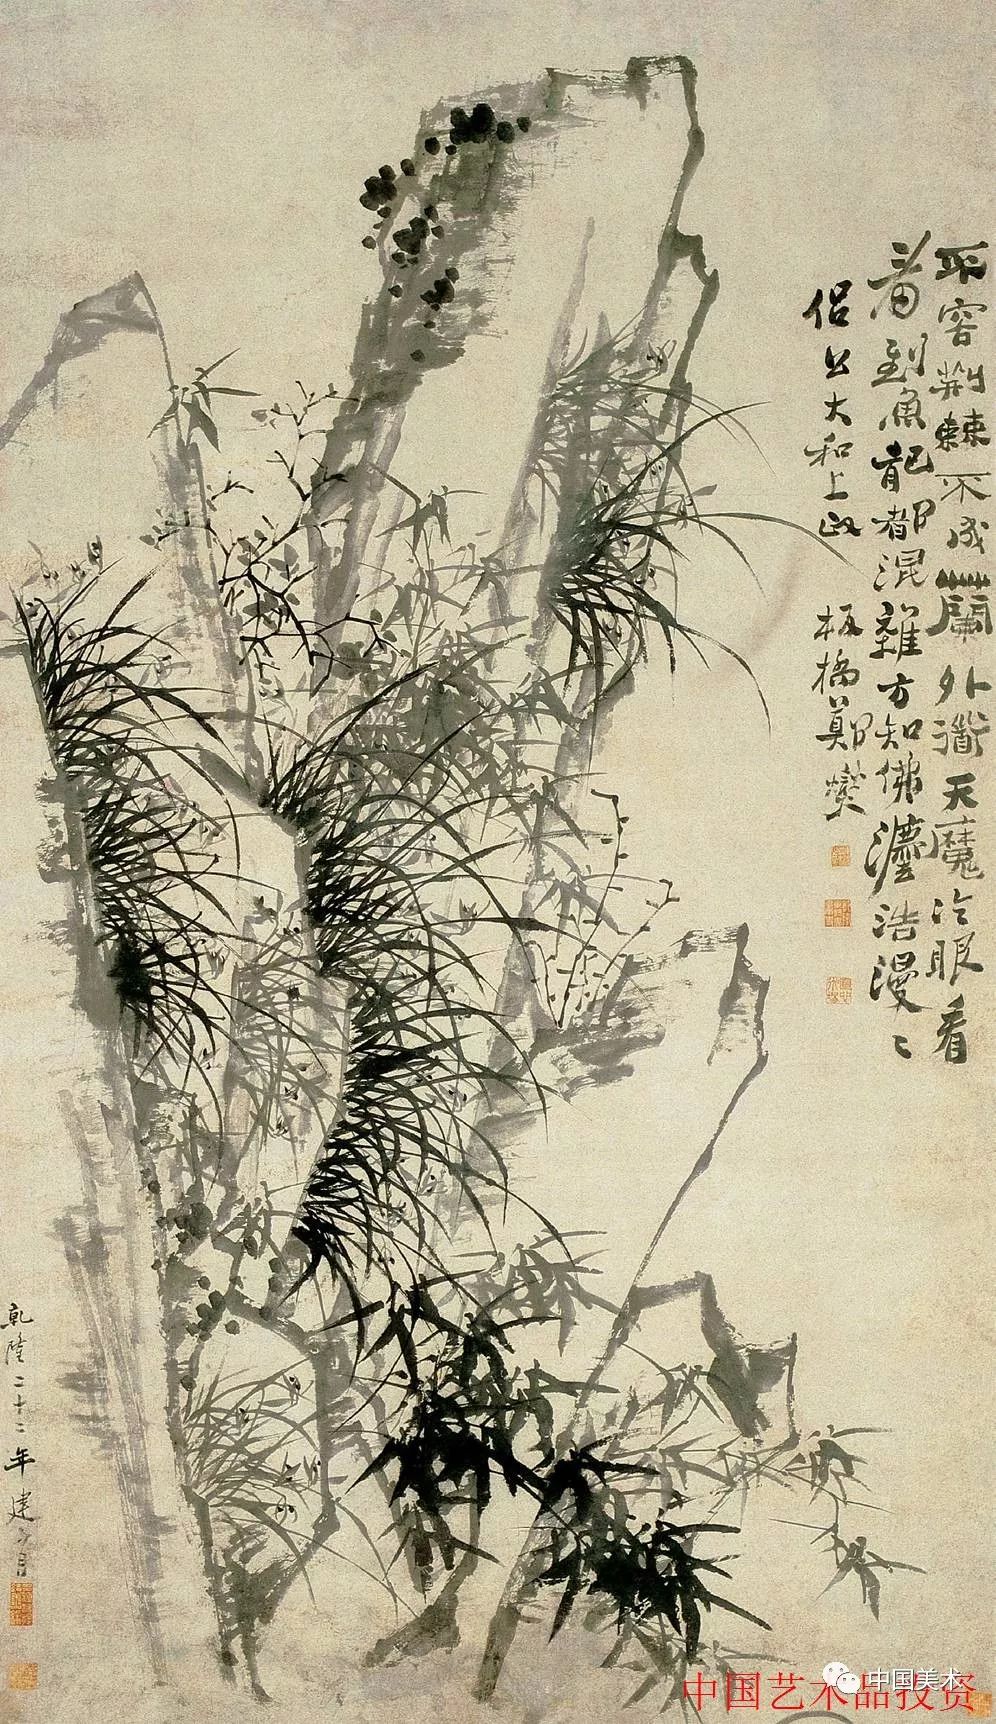 不容荆棘不成蘭外道天魔冷眼看
看到魚龍都混雜方知佛濾浩漫〻
侣公大和上政
板橋鄭燮
乾隆二十二年建子月
中国艺术品投资
中国美术